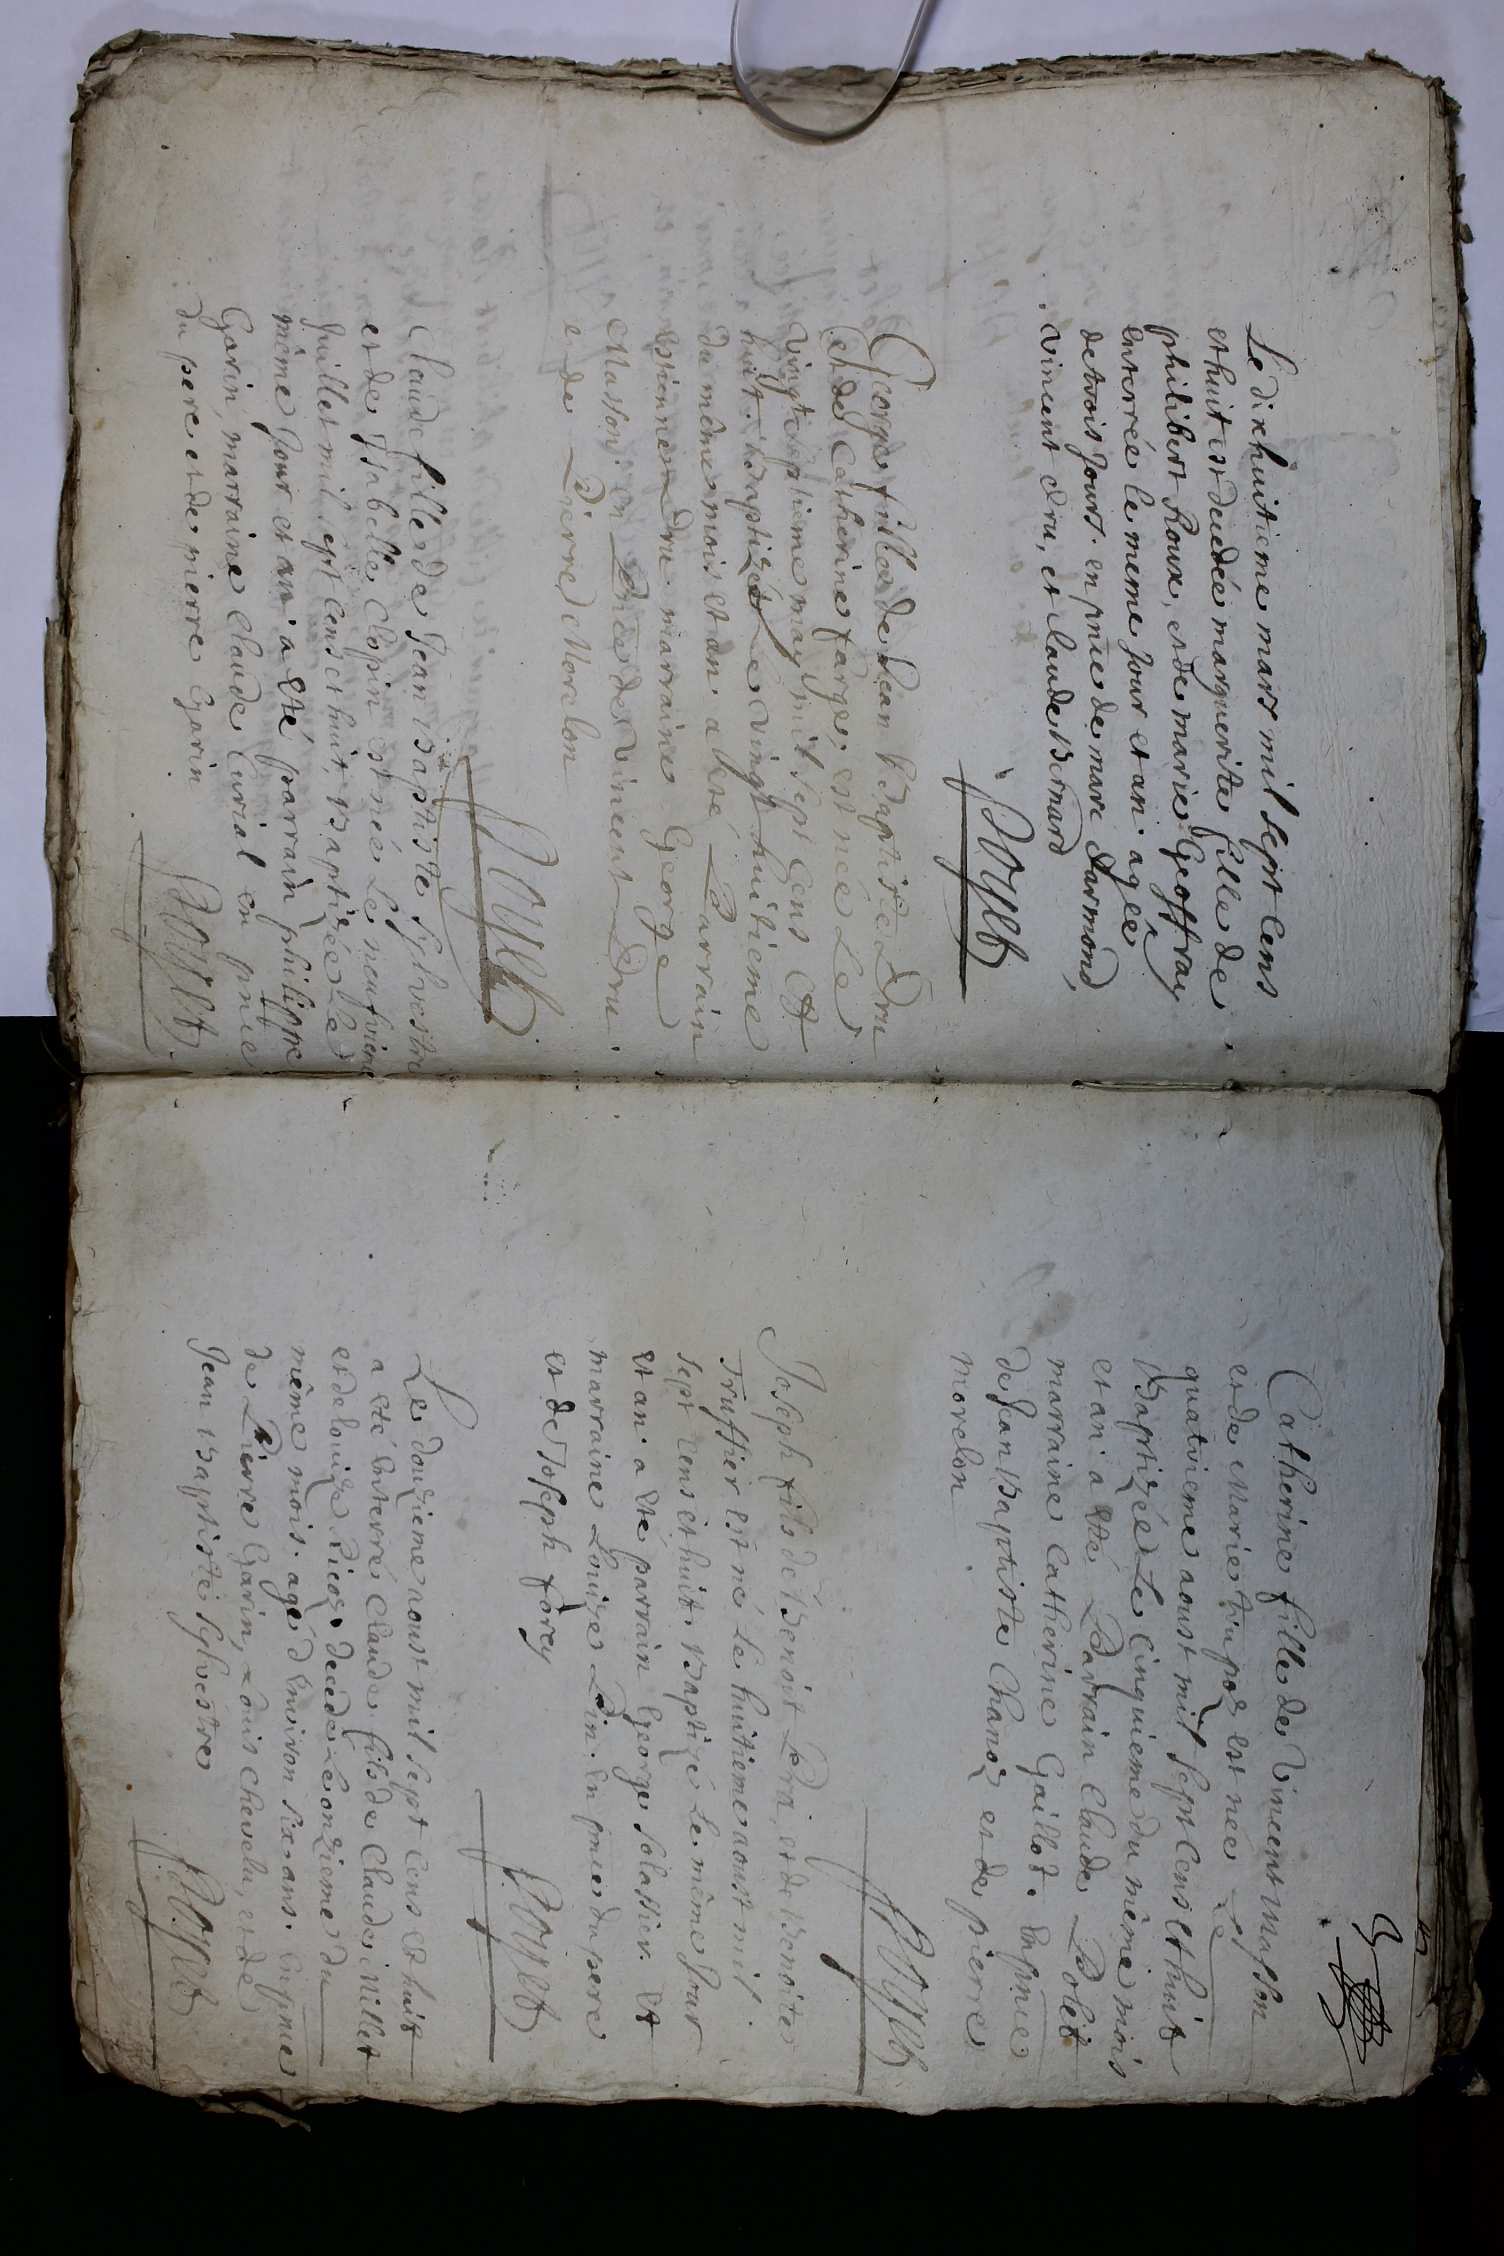 Le dixhuitieme mars mil sept cens
et huit est decedée marguerite fille de
philibert Roux, et de marie Geoffray
enterrée le meme jour et an. agée
de trois jours. en pnce de marc Darmond,
vincent dru, et claude Bernard
George fille de Jean Baptiste Dru
et de Catherine farge, est née Le
vingt septieme may mil sept Cens Et
huit. Baptizée Le vingt huitieme
du même mois et an. a esté Parrain
Estienne Dru marraine George
Masson. en Pnce de Vincent Dru.
e de Pierre Morelon
Claude fille de Jean Baptiste Sylvestre
et de Isabelle Clopin est née Le neufvieme
Juillet mil sept Cens et huit, Baptizée Le
même Jour et an. a eté parrain philippe
Garin, marraine Claude Curial en pnce
du pere et de pierre Garin
Catherine fille de Vincent Masson
et de Marie est née Le
quatrieme aoust mil sept Cens et huit
Baptizée Le Cinquieme du même mois
et an. a eté Parrain Claude Polet
marraine Catherine Gaillot. En pnce
de Jean Baptiste Chanoz et de pierre
morelon
Joseph fils de Benoit Pra, et de Benoite
Truffier est né Le huitieme aoust mil
sept Cens et huit. Baptizé Le même Jour
et an. a eté parrain George Solassier. Et
marraine Louize Pin. En pnce du pere
et de Joseph forey
Le douzieme aoust mil sept Cens et huit
a eté Enterré Claude fils de Claude
et de louize decedé Le onzieme du
même mois. agé d'Environ six ans. En pnce
de Pierre Garin, Louis Chevelu, et de
Jean Baptiste Sylvestre